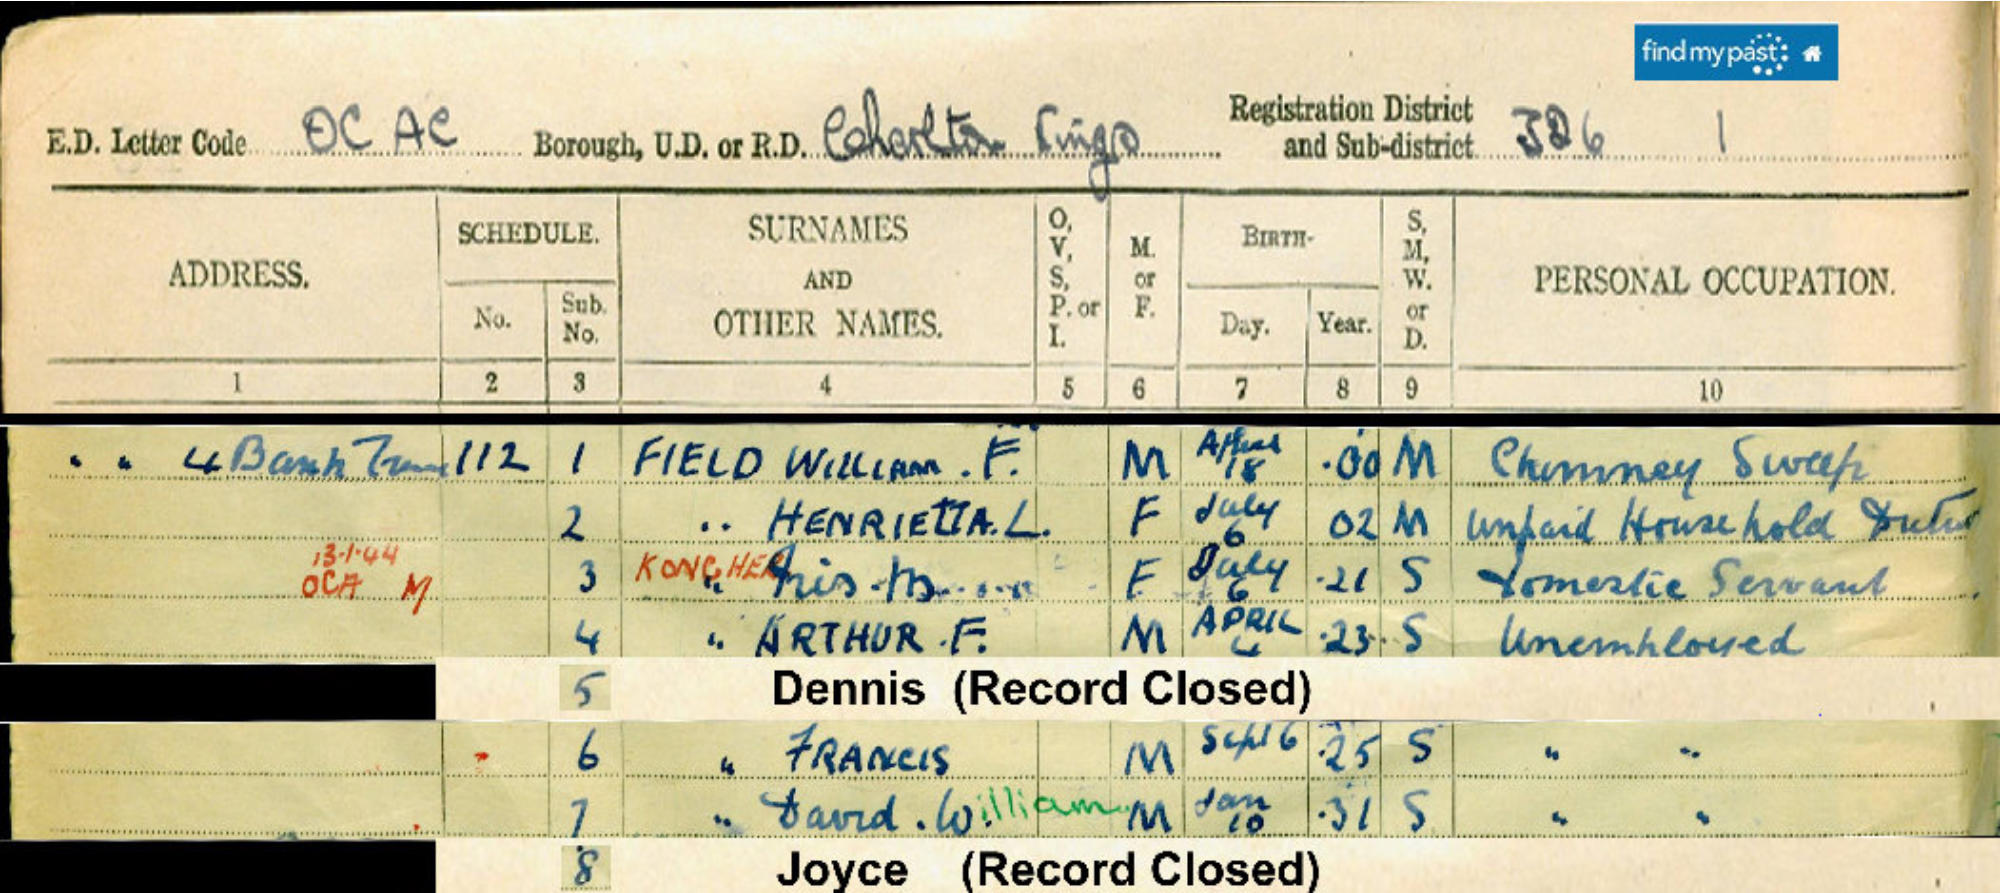 findmypast
E.D. Letter Code OCAC Borough, U.D. or R.D. Charlton Kings Registration District and Sub-district 326 1
ADDRESS. SCHEDULE. No. Sub. No. SURNAMES AND OTHER NAMES. O, V, S, P. or I. M. or F. BIRTH- Day. Year. S, M, W. or D. PERSONAL OCCUPATION.
1 2 3 4 5 6 7 8 9 10
" " 4 Bank 112 1 FIELD WILLIAM . F. M April 18 .00 M Chimney Sweep
2 " HENRIETTA. L. F July 6 02 M Unpaid Household Duties
13-1-44
OCA M 3 " Iris . M F July 6 .21 S Domestic Servant
4 " ARTHUR . F. M APRIL 4 .23. S Unemployed
5 Dennis (Record Closed)
6 " FRANCIS M Sept 6 .25 S " "
7 " David . William M Jan 10 .31 S " "
8 Joyce (Record Closed)